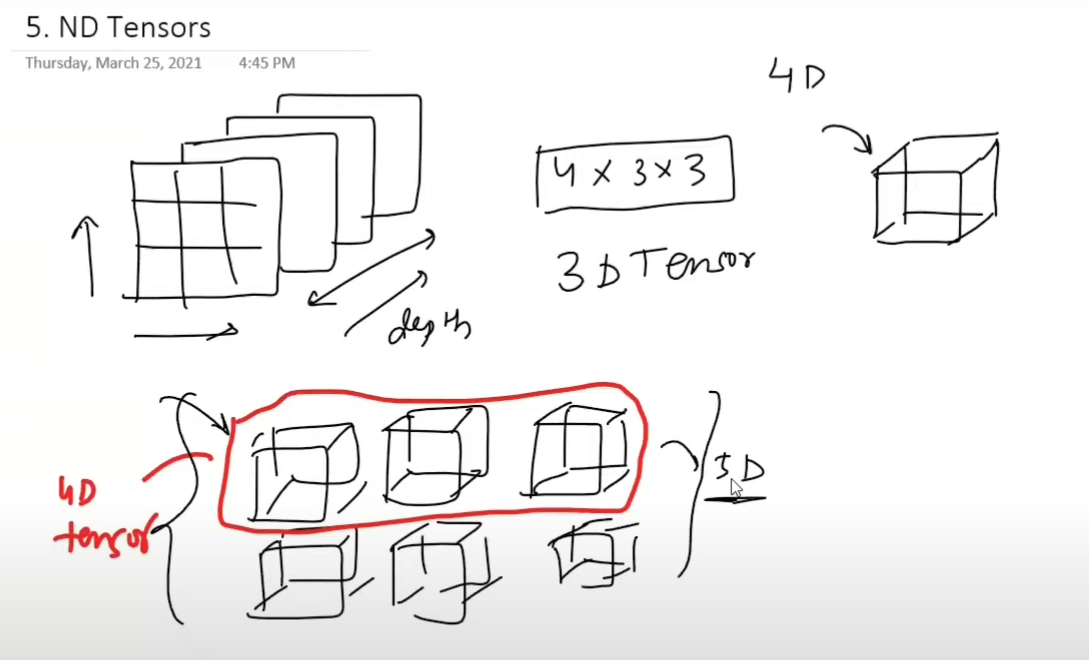 5. ND Tensors
Thursday, March 25, 2021 4:45 PM
4D
4 × 3 × 3
3D Tensor
depth
5D
4D
tensor